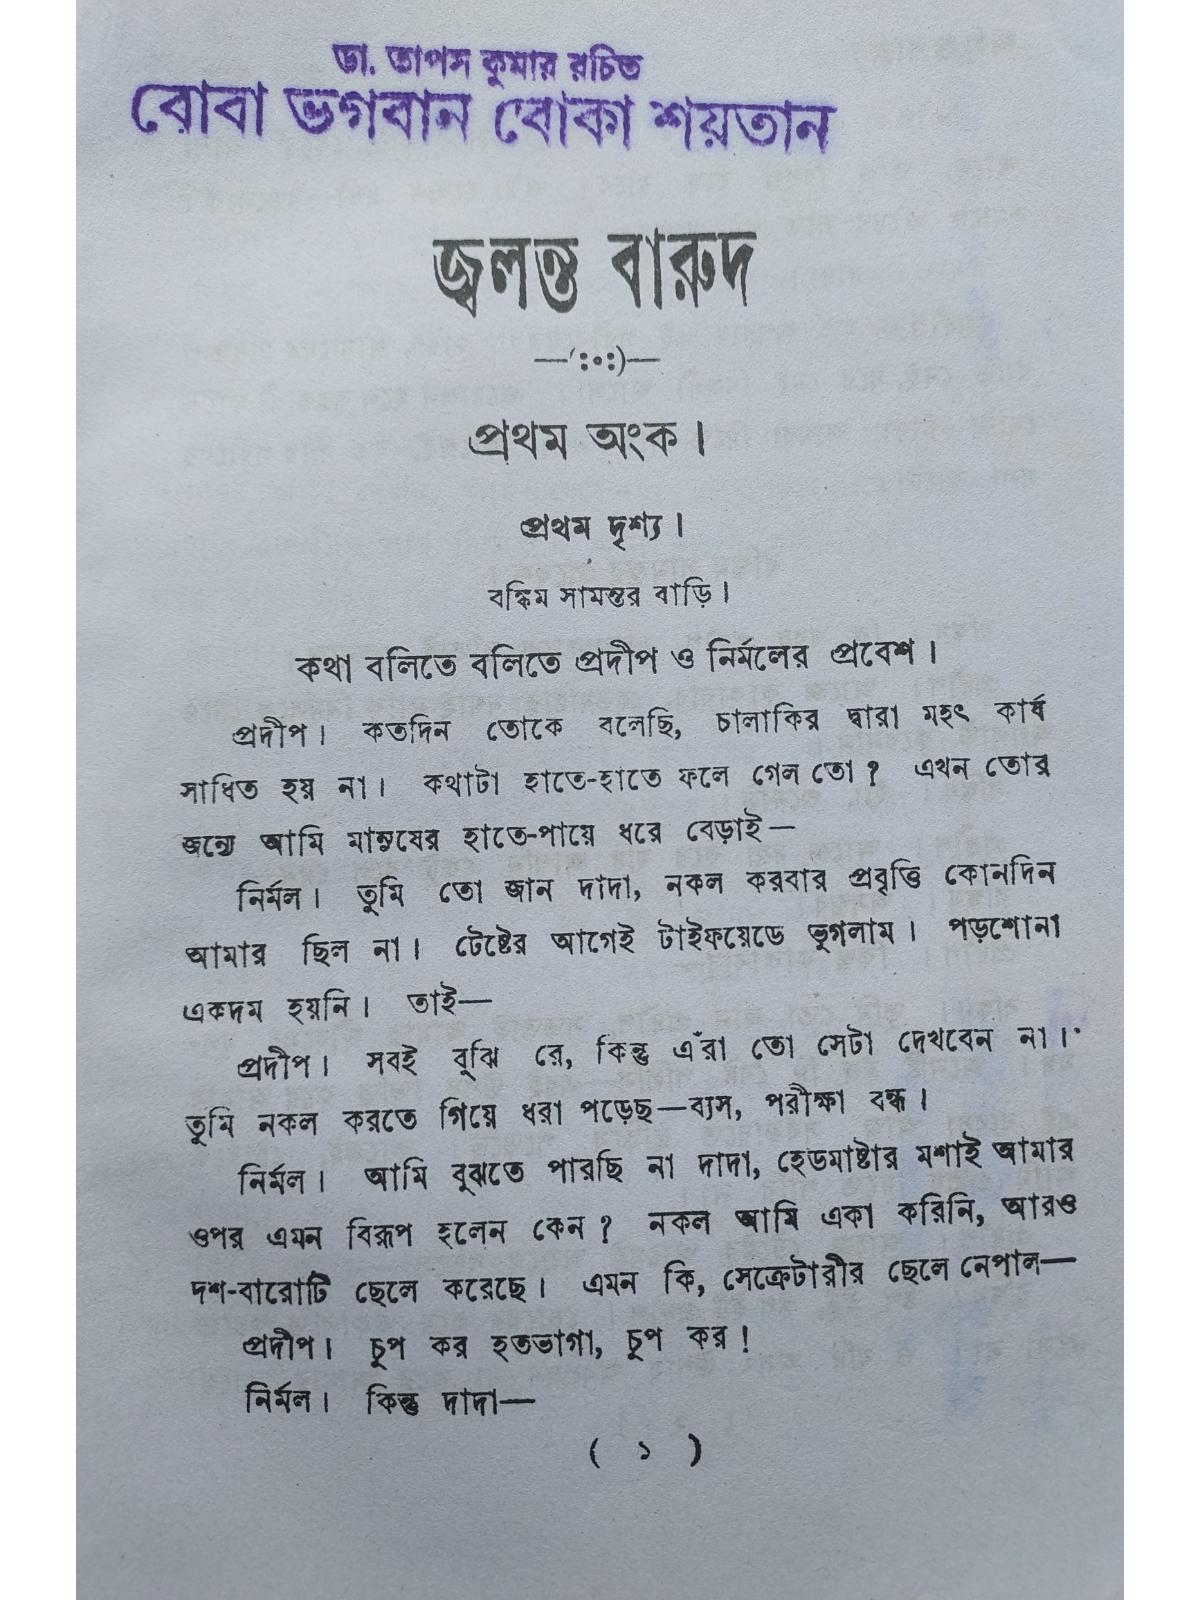 ডা. তাপস কুমার রচিত
বোবা ভগবান বোকা শয়তান
জ্বলন্ত বারুদ
—(:०:)—
প্রথম অংক।
প্রথম দৃশ্য।
বঙ্কিম সামন্তর বাড়ি।
কথা বলিতে বলিতে প্রদীপ ও নির্মলের প্রবেশ।
প্রদীপ। কতদিন তোকে বলেছি, চালাকির দ্বারা মহৎ কার্য
সাধিত হয় না। কথাটা হাতে-হাতে ফলে গেল তো? এখন তোর
জন্যে আমি মানুষের হাতে-পায়ে ধরে বেড়াই—
নির্মল। তুমি তো জান দাদা, নকল করবার প্রবৃত্তি কোনদিন
আমার ছিল না। টেষ্টের আগেই টাইফয়েডে ভুগলাম। পড়াশোনা
একদম হয়নি। তাই—
প্রদীপ। সবই বুঝি রে, কিন্তু এঁরা তো সেটা দেখবেন না।
তুমি নকল করতে গিয়ে ধরা পড়েছ—ব্যস, পরীক্ষা বন্ধ।
নির্মল। আমি বুঝতে পারছি না দাদা, হেডমাষ্টার মশাই আমার
ওপর এমন বিরূপ হলেন কেন? নকল আমি একা করিনি, আরও
দশ-বারোটি ছেলে করেছে। এমন কি, সেক্রেটারীর ছেলে নেপাল—
প্রদীপ। চুপ কর হতভাগা, চুপ কর!
নির্মল। কিন্তু দাদা—
( ১ )